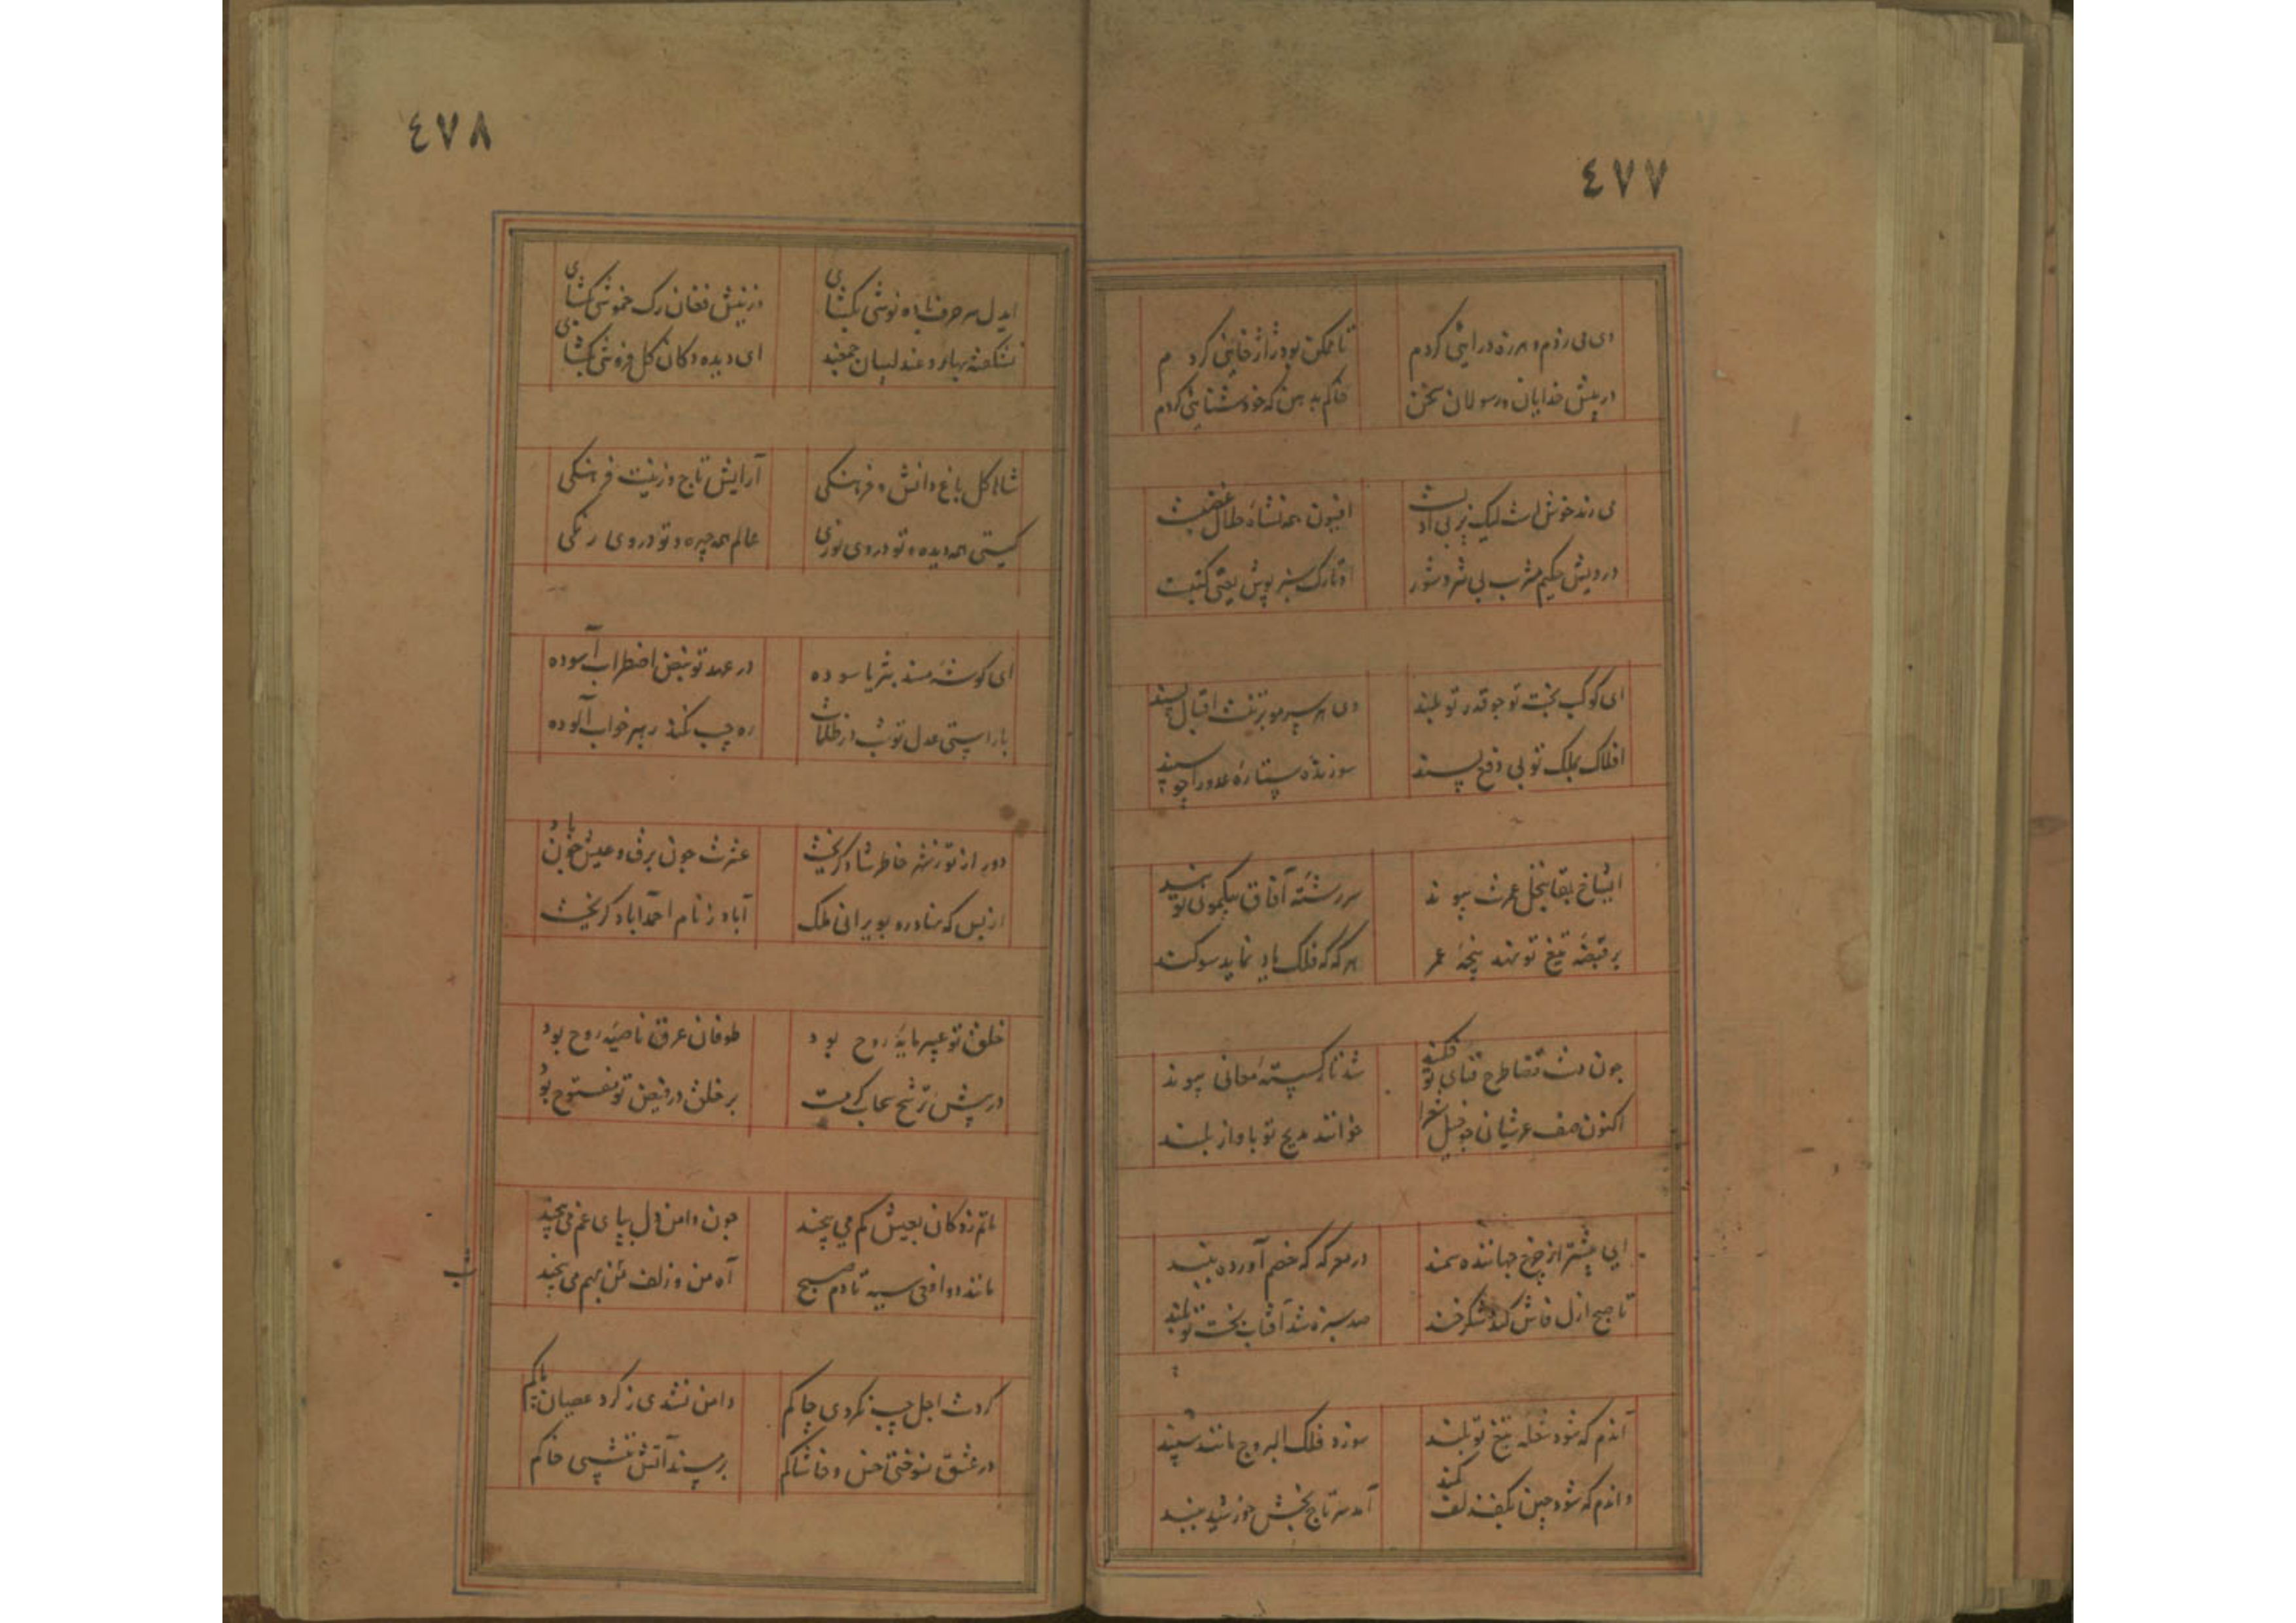 ٤٧٧
دی می زدم و هرزه درایی کردم
تا ممکن بود ژاژخایی کردم
در پیش خدایان و رسولان سخن
خاکم بدهن که خودستایی کردم
می رند خوش است لیک بی
افیون همه نشاه
درویش حکیم مشرب بی شر و شور
او تارک سبزپوش یعنی
ای کوکب بخت تو چو قدر تو بلند
وی هر سر مو بزینت اقبال پسند
افلاک بملک تو بی دفع پسند
سوزنده ستاره عدو را چو سپند
ای شاخ بقا بنخل عمرت پیوند
سررشته آفاق بیکموی تو بند
بر قبضه تیغ تو نهد پنجه مهر
هر گه که فلک یاد نماید سوکند
چون دست قضا طرح ثنای تو فکند
شد تار کسسته معانی پیوند
اکنون صف عرشیان چو خیل شعرا
خوانند مدیح تو باواز بلند
ای پیشتر از چرخ جهانده سمند
در معرکه که خصم آورده به بند
تا صبح ازل فاش کند شکرخند
صد نیزه شد آفتاب بخت تو بلند
آندم که شود شعله تیغ تو بلند
سوزد فلک البروج مانند سپند
واندم که شود چین بکفت زلف کمند
آمد سر تاج بخش خورشید به بند
٤٧٨
ایدل سر حرف باده نوشی بکشای
وز نیش فغان رک خموشی بکشای
بشکفته بهار و عندلیبان جمعند
ای دیده دکان کل فروشی بکشای
شاها کل باغ دانش و فرهنکی
آرایش تاج و زینت فرهنکی
کیتی همه دیده و تو در وی نوری
عالم همه چهره و تو در وی رنکی
ای کوشه مسند بثریا سوده
در عهد تو نبض اضطراب آسوده
با راستی عدل تو شب در ظلمات
ره چپ نکند رهبر خواب آلوده
دور از تو ز شهر خاطر شاد کریخت
عشرت چون برق و عیش چون باد کریخت
از بس که نهاد رو بویرانی ملک
آباد ز نام احمدآباد کریخت
خلق تو عبیرمایه روح بود
طوفان عرق ناصیه روح بود
در پیش ترشح سحاب کرمت
بر خلق در فیض تو مفتوح بود
ماتم زدکان بعیش کم می پیچند
چون دامن دل بپای غم می پیچند
مانند دو افعی سیه تا دم صبح
آه من و زلف شب بهم می پیچند
شب
کردست اجل جیب نکردی چاکم
دامن نشدی ز کرد عصیان پاکم
در عشق نسوختی خس و خاشاکم
بر مسند آتش ننشستی خاکم